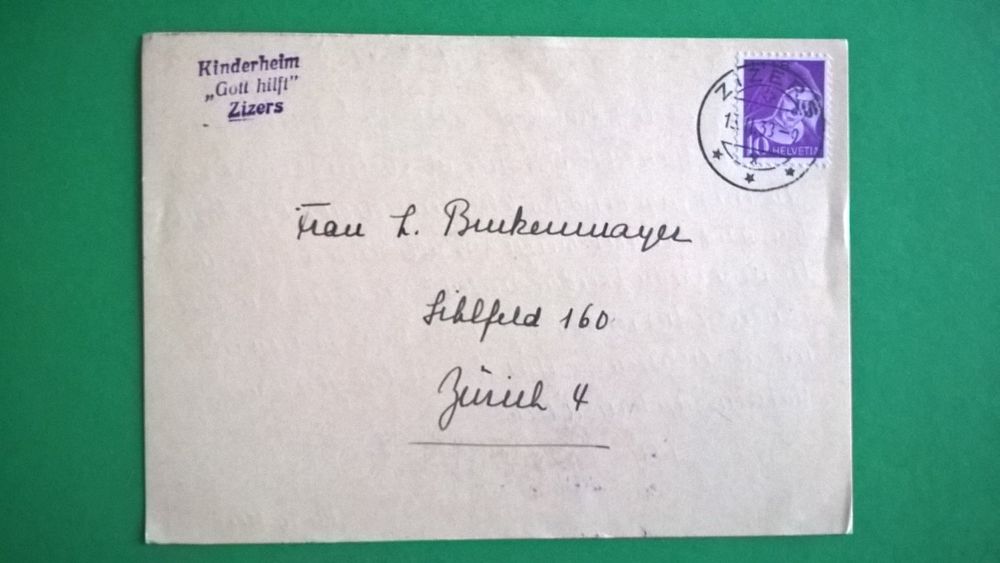 Kinderheim
„Gott hilft"
Zizers
ZIZERS
10 HELVETIA
Frau L.
Sihlfeld 160
Zürich 4